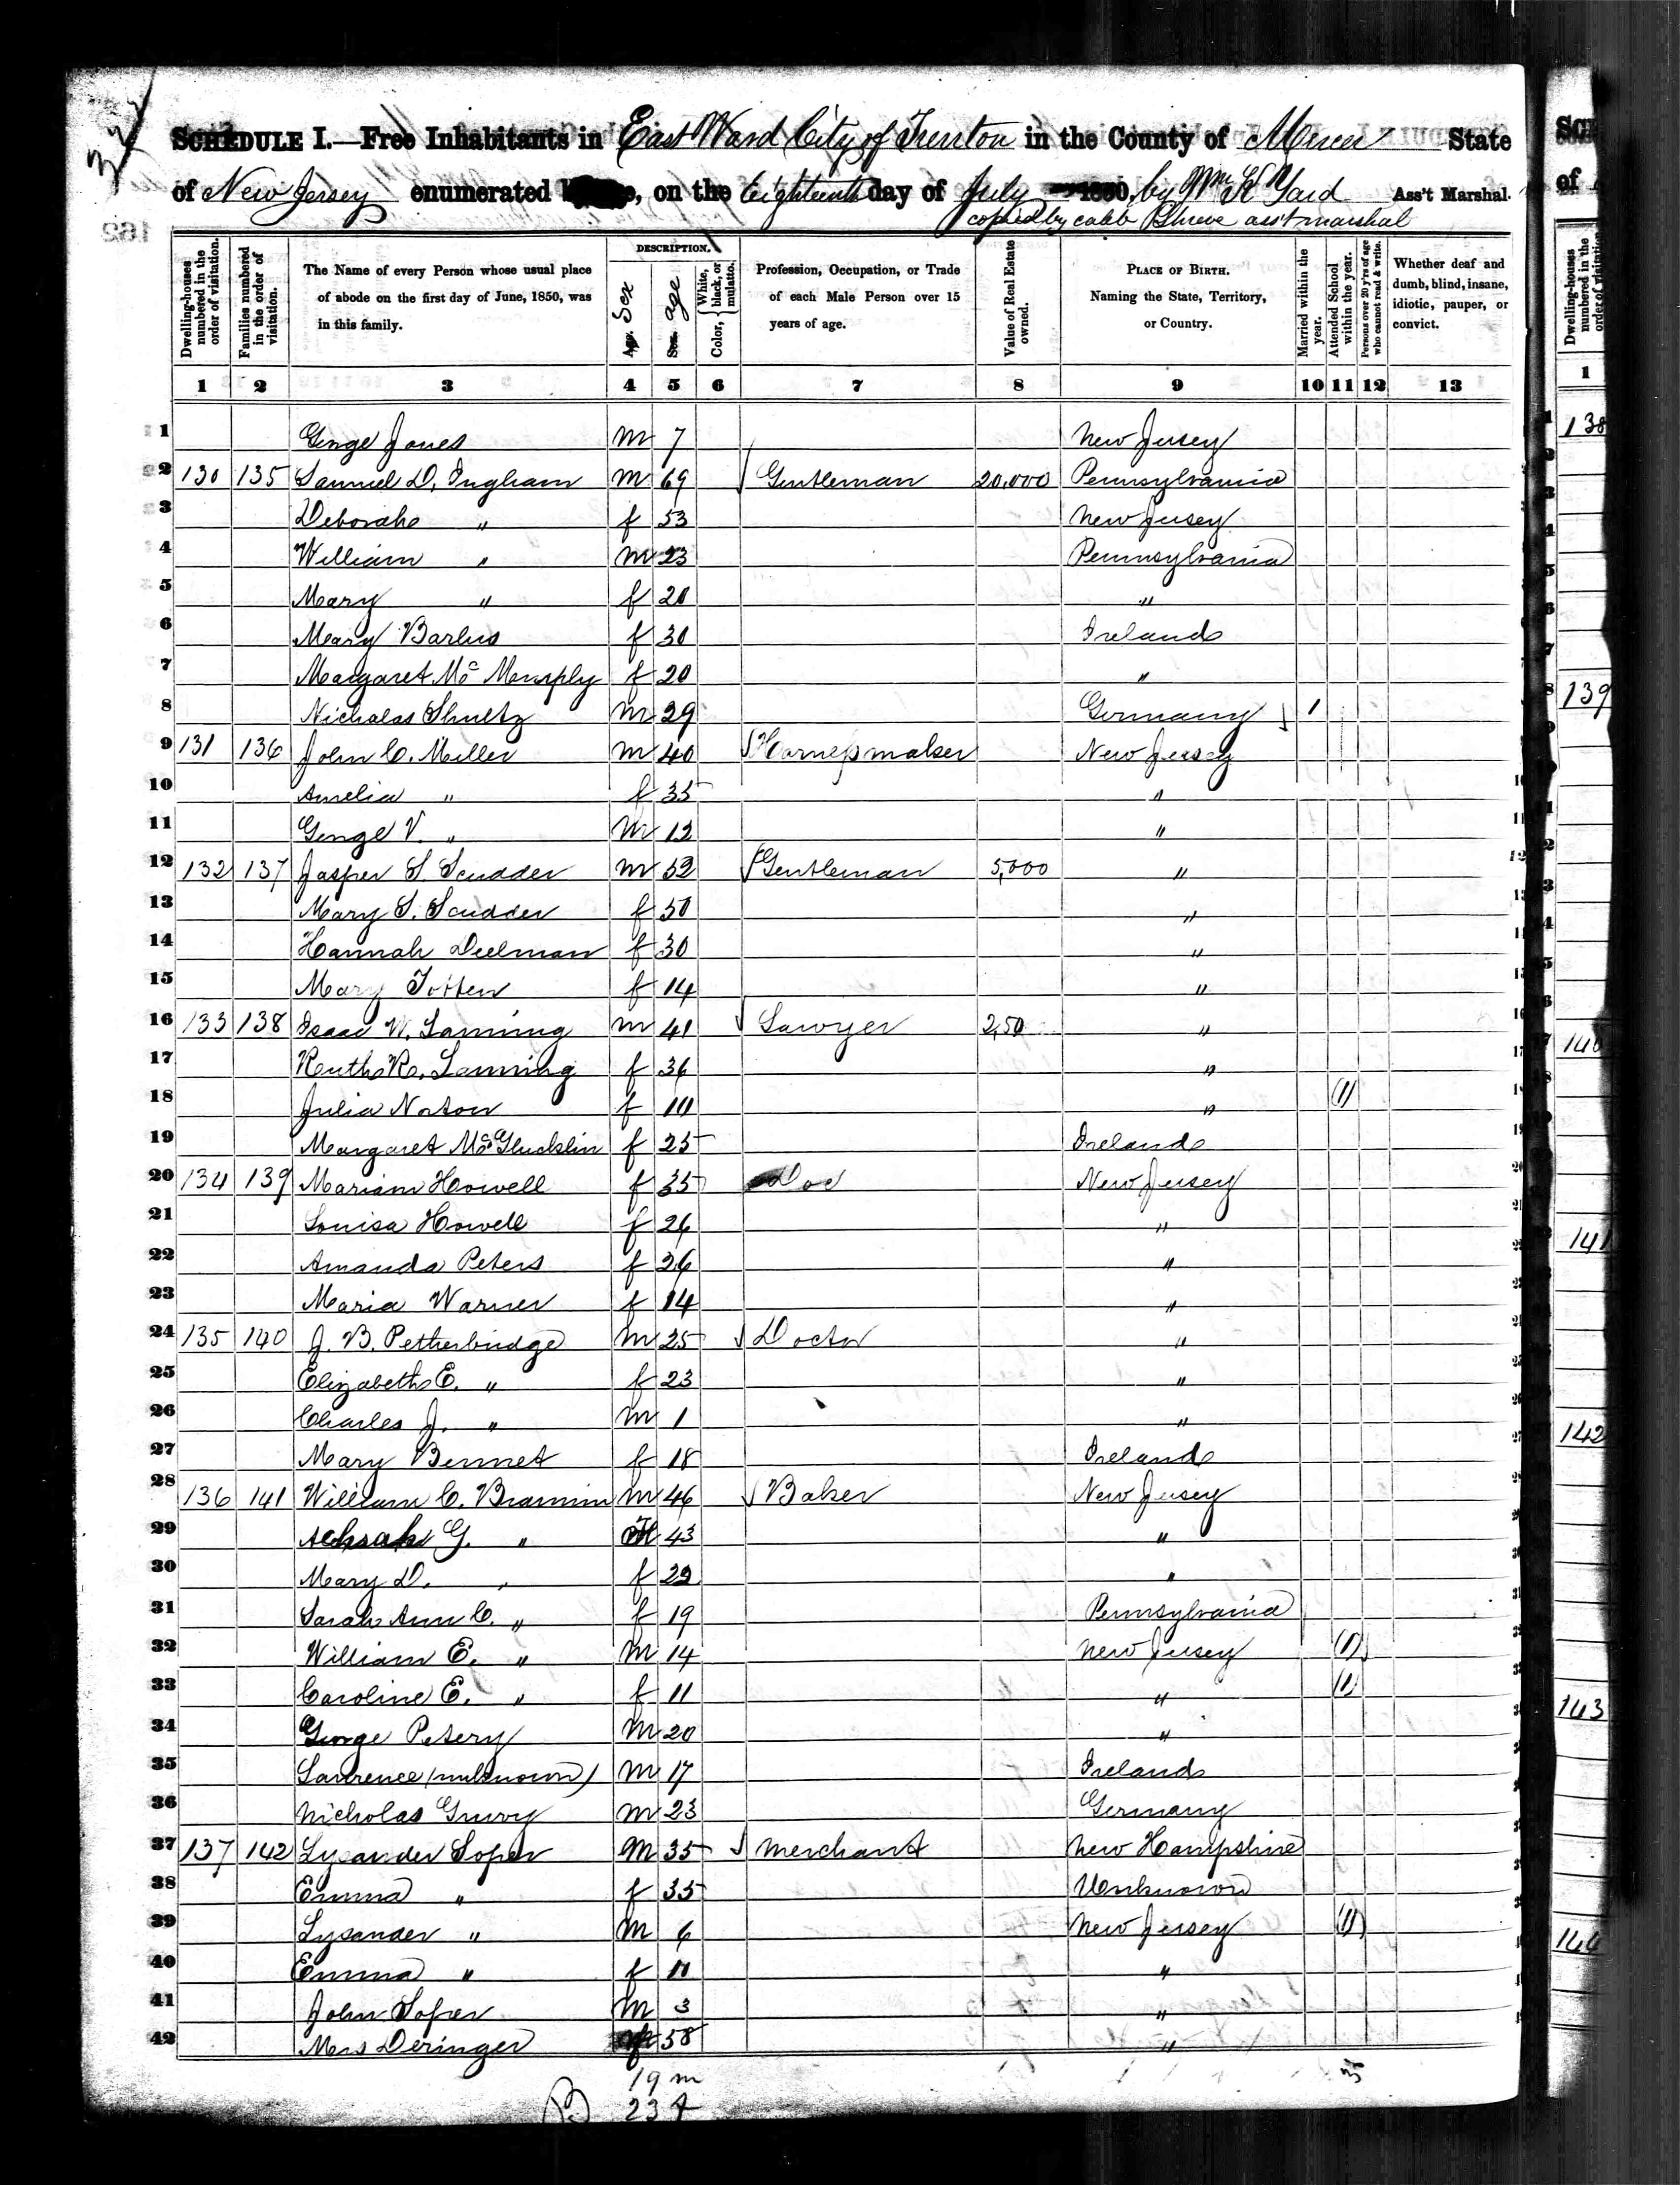 SCHEDULE I.—Free Inhabitants in East Ward City of Trenton in the County of Mercer State
of New Jersey enumerated on the Eighteenth day of July 1850, by Wm K Yard Ass't Marshal.
copied by caleb Shreve ass't marshal
DESCRIPTION.
Dwelling-houses numbered in the order of visitation. Families numbered in the order of visitation. The Name of every Person whose usual place of abode on the first day of June, 1850, was in this family. Sex age Color, { White, black, or mulatto. Profession, Occupation, or Trade of each Male Person over 15 years of age. Value of Real Estate owned. PLACE OF BIRTH. Naming the State, Territory, or Country. Married within the year. Attended School within the year. Persons over 20 y'rs of age who cannot read & write. Whether deaf and dumb, blind, insane, idiotic, pauper, or convict.
1 2 3 4 5 6 7 8 9 10 11 12 13
1 George Jones m 7 New Jersey
2 130 135 Samuel D. Ingham m 69 Gentleman 20,000 Pennsylvania
3 Deborah " f 53 New Jersey
4 William " m 23 Pennsylvania
5 Mary " f 20 "
6 Mary f 30 Ireland
7 Margaret Mc f 20 "
8 Nicholas Shultz m 29 Germany 1
9 131 136 John C. Miller m 40 Harnessmaker New Jersey
10 Amelia " f 35 "
11 George V. " m 12 "
12 132 137 Jasper S. Scudder m 52 Gentleman 5,000 "
13 Mary S. Scudder f 50 "
14 Hannah f 30 "
15 Mary Totten f 14 "
16 133 138 Isaac W. Lanning m 41 Lawyer 2,50 "
17 Ruth R. Lanning f 36 "
18 Julia Norton f 10 " (1)
19 Margaret McGlucklin f 25 Ireland
20 134 139 Mariam Howell f 35 Doc New Jersey
21 Louisa Howell f 26 "
22 Amanda Peters f 26 "
23 Maria Warner f 14 "
24 135 140 J. B. Petherbridge m 25 Doctor "
25 Elizabeth E. " f 23 "
26 Charles J. " m 1 "
27 Mary Bennet f 18 Ireland
28 136 141 William C. Brannin m 46 Baker New Jersey
29 Achsah G. " 43 "
30 Mary D. " f 22 "
31 Sarah Ann C. " f 19 Pennsylvania
32 William E. " m 14 New Jersey (1)
33 Caroline E. " f 11 " (1)
34 George Petery m 20 "
35 Lawrence (unknown) m 17 Ireland
36 Nicholas m 23 Germany
37 137 142 Lysander Soper m 35 merchant New Hampshire
38 Emma " f 35 Unknown
39 Lysander " m 6 New Jersey (1)
40 Emma " f 11 "
41 John Soper m 3 "
42 Mrs Deringer f 58 "
19 m
23 f
138
139
140
141
142
143
144